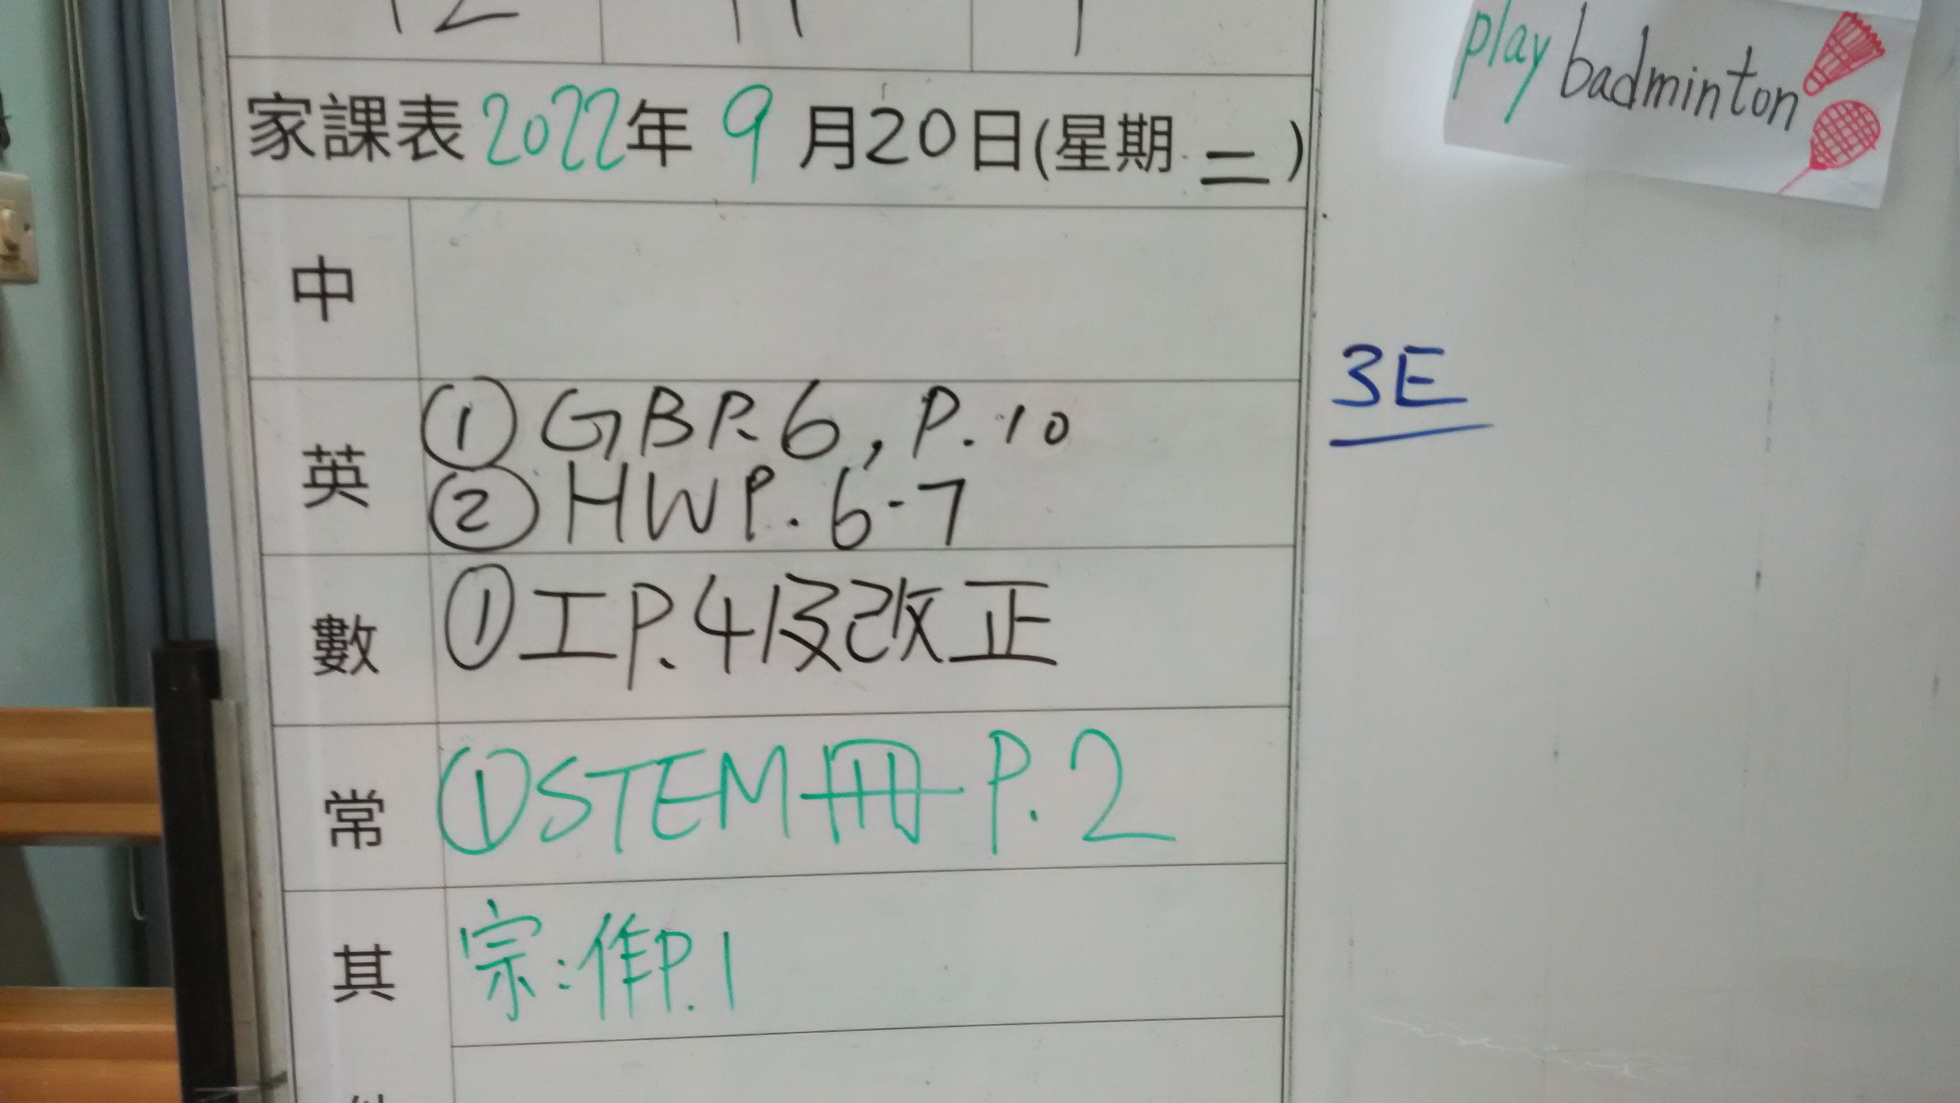 play badminton
家課表 2022年 9月20日(星期二)
中
英
① GB P.6, P.10
② HW P.6-7
數
① 工P.4及改正
常
① STEM冊 P.2
其
宗:作P.1
3E